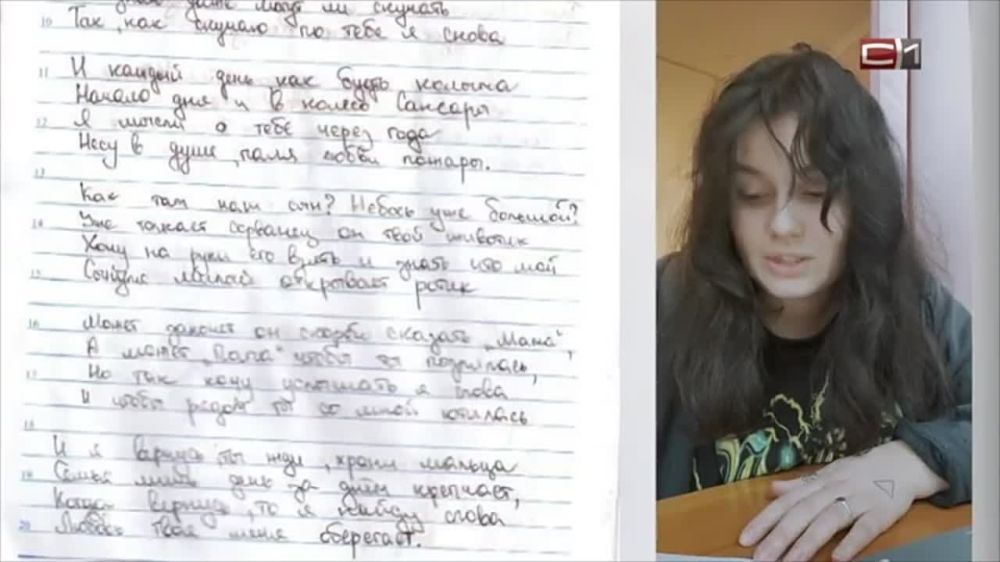 могут ли скучать
10 Так, как скучаю по тебе я снова
11 И каждый день как будь копыта
Начало дня и в колесо Сансары
12 Я мысли о тебе через года
Несу в душе, паля любви пожары.
13
Как там наш сын? Небось уже большой?
14 Уже толкает сорванец он твой животик
Хочу на руки его взять и знать что мой
15 милый открывает ротик
16 Может захочет он скорее сказать "Мама",
А может "Папа" чтобы ты
17 Но так хочу услышать я слова
И чтобы рядом ты со мной ютилась
18
И я вернусь ты жди, храни мальца
19 Семья лишь день за днём крепчает,
Когда вернусь, то я найду слова
20 Любовь твоя меня оберегает.
С1